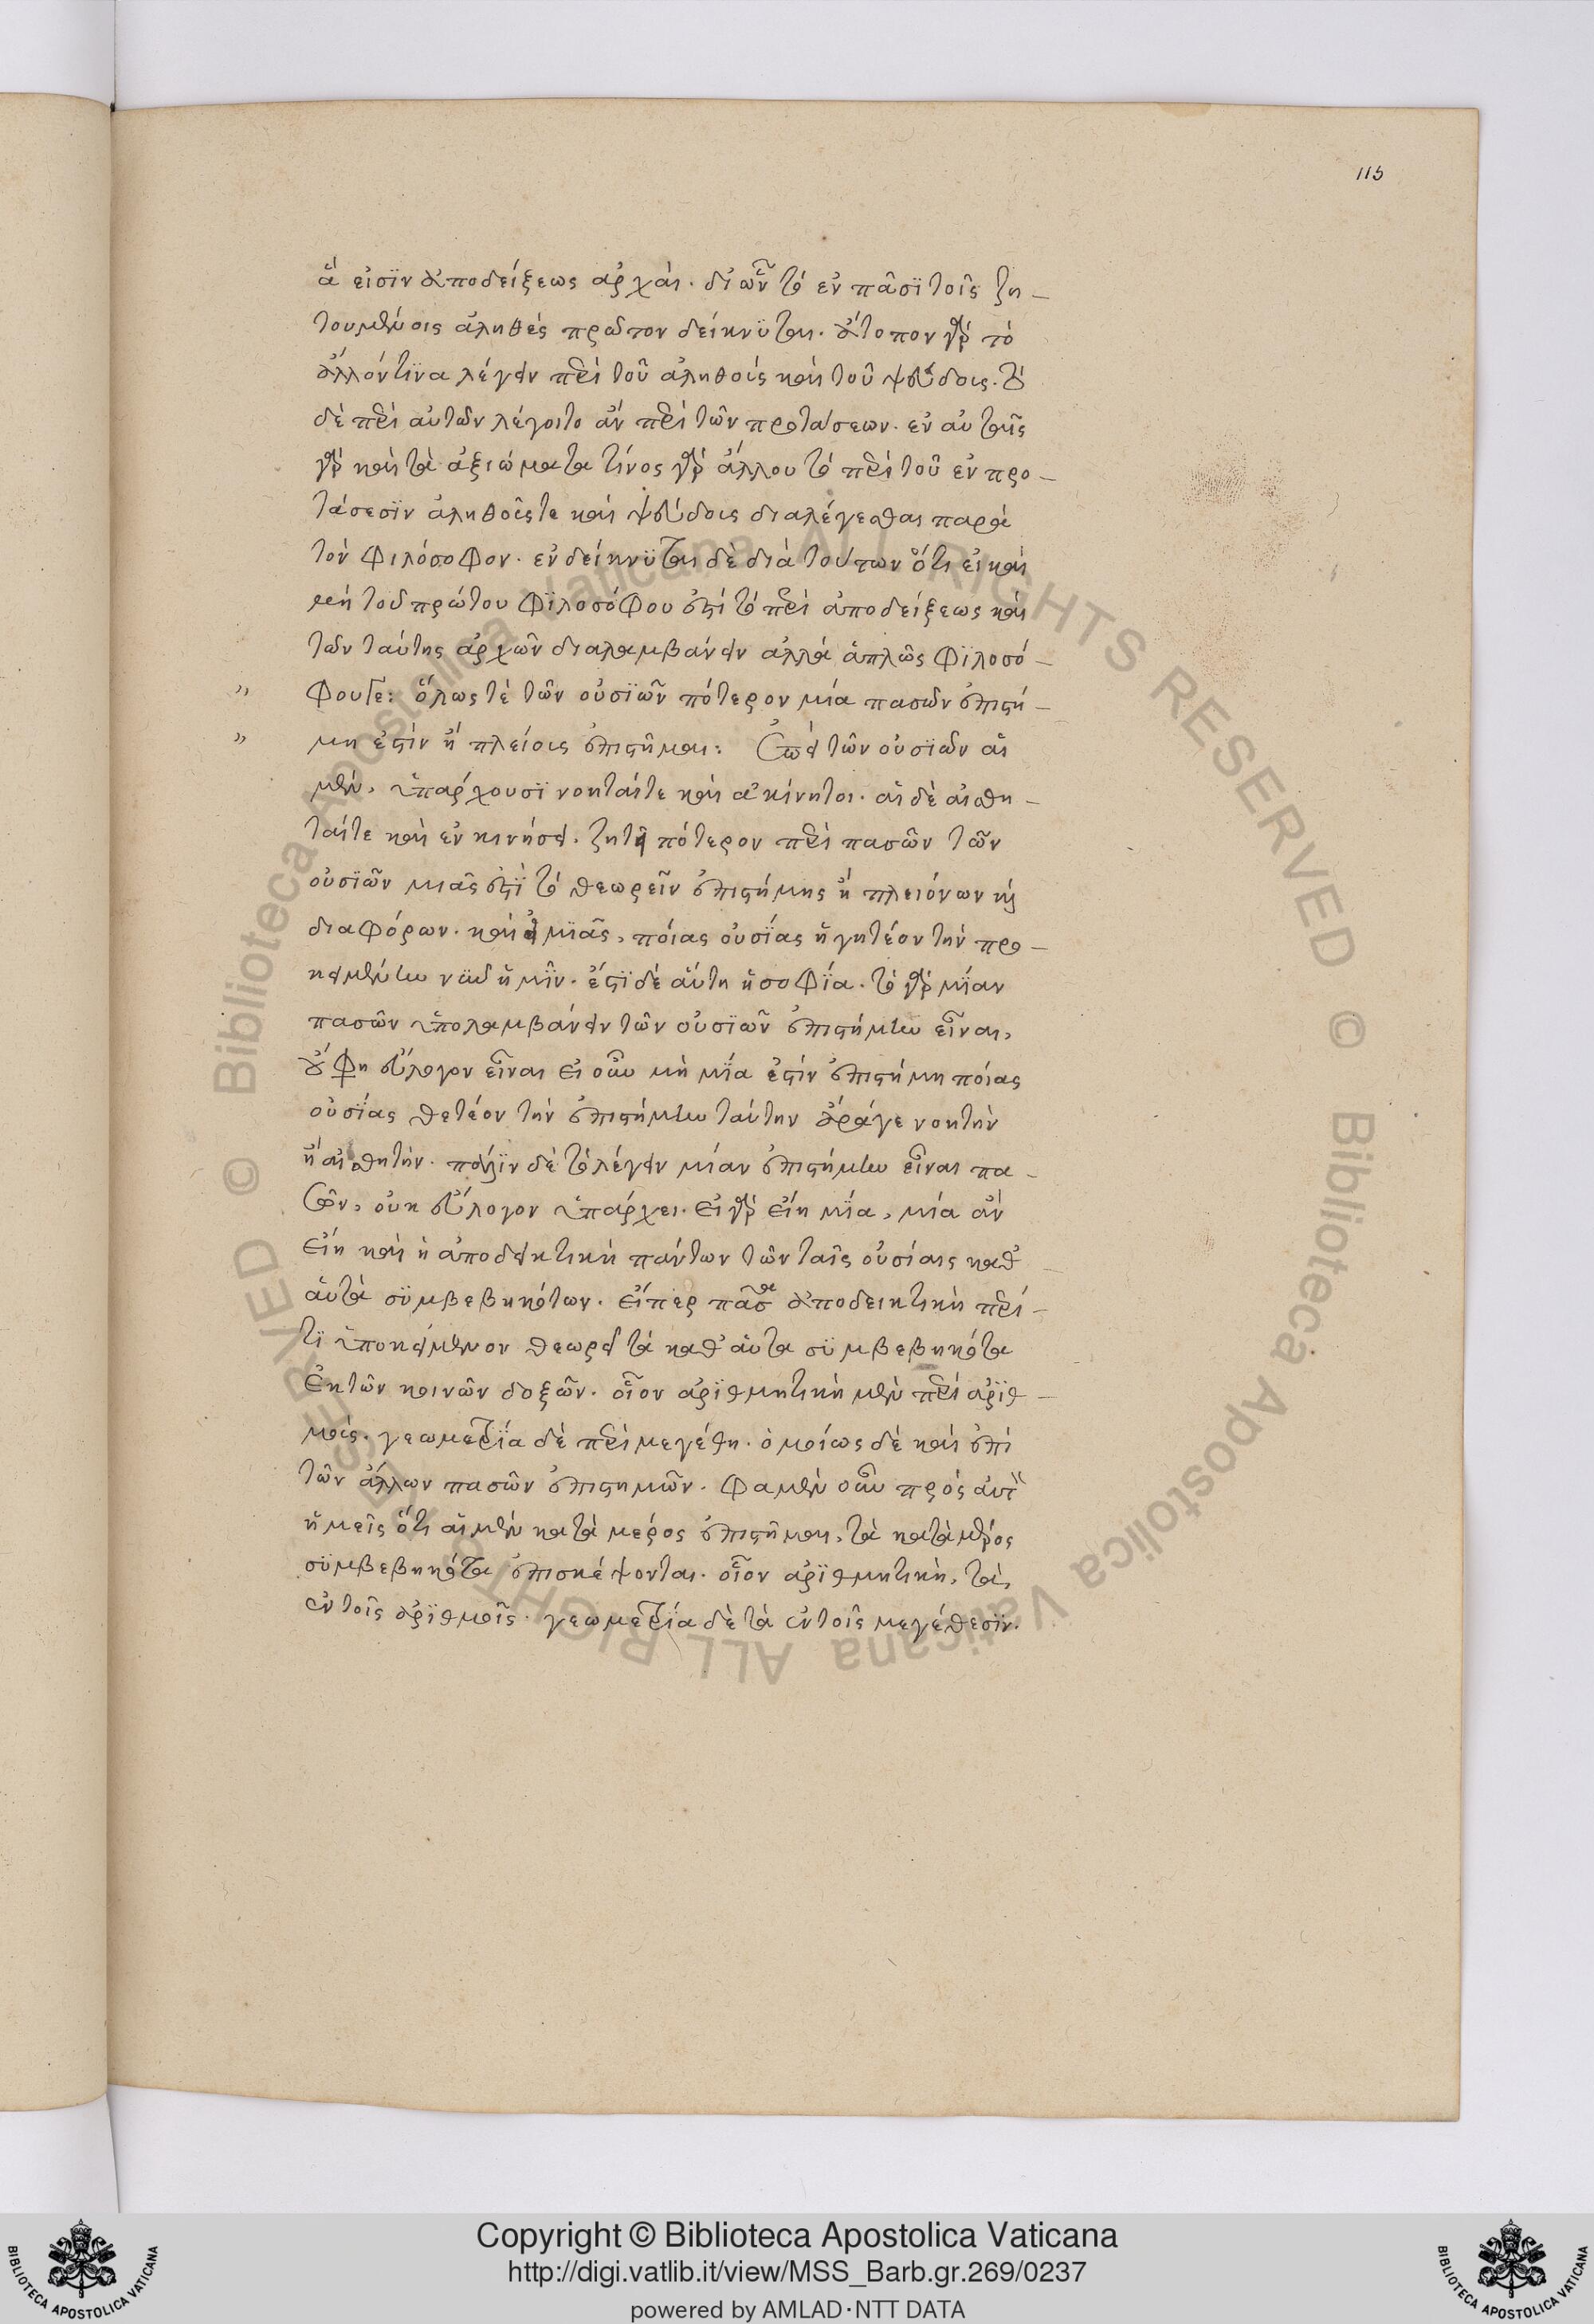 115
ἅ εἰσϊν ἀποδείξεως ἀρχάι. δἰ ὧν τὸ ἐν πᾶσϊ τοῖς ζη-
τουμένοις ἀληθὲς πρῶτον δείκνϋται. ἄτοπον γὰρ τὸ
ἄλλόν τϊνα λέγειν περὶ τοῦ ἀληθοῦς καὶ τοῦ ψεύδους. τὸ
δὲ περὶ αὐτῶν λέγοιτο ἂν περὶ τῶν προτάσεων. ἐν αὐταῖς
γὰρ καὶ τὰ ἀξιώματα τίνος γὰρ ἄλλου τὸ περὶ τοῦ ἐν προ-
τάσεσϊν ἀληθοῦς τε καὶ ψεύδους διαλέγεσθαι παρὰ
τὸν φιλόσοφον. ἐνδείκνϋται δὲ διὰ τούτων ὅτι εἰ καὶ
μὴ τοῦ πρώτου φϊλοσόφου ἐστὶ τὸ περὶ ἀποδείξεως καὶ
τῶν ταύτης ἀρχῶν διαλαμβάνειν ἀλλὰ ἁπλῶς φϊλοσό-
” φου γε: ὅλως τὲ τῶν οὐσϊῶν πότερον μία πασῶν ἐπιστή-
” μη ἐστὶν ἢ πλείους ἐπιστῆμαι: Ἐπεὶ τῶν οὐσϊῶν αἱ
μὲν, ὑπάρχουσϊ νοηταί τε καὶ ἀκίνητοι. αἱ δὲ αἰσθη-
ταί τε καὶ ἐν κινήσει. ζητεῖ πότερον περὶ πασῶν τῶν
οὐσϊῶν μιᾶς ἐστϊ τὸ θεωρεῖν ἐπιστήμης ἢ πλειόνων καὶ
διαφόρων. καὶ εἰ μϊᾶς, ποίας οὐσϊας ἡγητέον τὴν προ-
κειμένην νῦν ἡμῖν. ἔστϊ δὲ αὕτη ἡ σοφΐα. τὸ γὰρ μΐαν
πασῶν ὑπολαμβάνειν τῶν οὐσϊῶν ἐπιστήμην εἶναι,
οὐ φησι εὔλογον εἶναι εἰ οὖν μὴ μΐα ἐστὶν ἐπιστήμη ποίας
οὐσΐας θετέον τὴν ἐπιστήμην ταύτην ἆράγε νοητὴν
ἢ αἰσθητήν. πάλϊν δὲ τὸ λέγειν μίαν ἐπιστήμην εἶναι πα-
σῶν, οὐκ εὔλογον ὑπάρχει. εἰ γὰρ εἴη μΐα, μία ἂν
εἴη καὶ ἡ ἀποδεικτικὴ πάντων τῶν ταῖς οὐσίαις καθ’
ἁυτὰ σϋμβεβηκότων. εἴπερ πᾶσα ἀποδεικτικὴ περί-
τϊ ὑποκείμενον θεωρεῖ τὰ καθ’ ἁυτα σϋμβεβηκότα
ἐκ τῶν κοινῶν δοξῶν. οἷον ἀρϊθμητικὴ μὲν περὶ ἀρϊθ-
μούς. γεωμετρΐα δὲ περὶ μεγέθη. ὁμοίως δὲ καὶ ἐπὶ
τῶν ἄλλων πασῶν ἐπιστημῶν. φαμὲν οὖν πρὸς αὐτὸ
ἡμεῖς ὅτι αἱ μὲν κατὰ μέρος ἐπιστῆμαι, τὰ κατὰ μέρος
σϋμβεβηκότα ἐπισκέψονται. οἷον ἀρϊθμητικὴ, τὰ,
ἐν τοῖς ἀρϊθμοῖς. γεωμετρία δὲ τὰ ἐν τοῖς μεγέθεσϊν.
© Biblioteca Apostolica Vaticana ALL RIGHTS RESERVED © Biblioteca Apostolica Vaticana ALL RIGHTS RESERVED
BIBLIOTECA APOSTOLICA VATICANA
Copyright © Biblioteca Apostolica Vaticana
http://digi.vatlib.it/view/MSS_Barb.gr.269/0237
powered by AMLAD·NTT DATA
BIBLIOTECA APOSTOLICA VATICANA